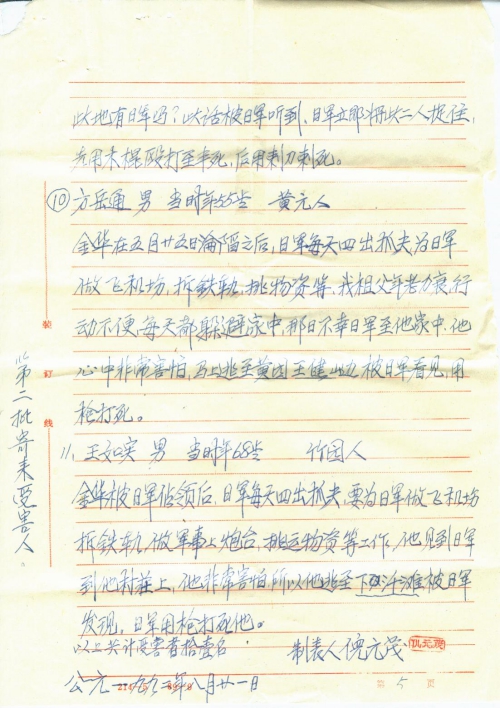 此地有日军吗？此话被日军听到，日军立即将此二人捉住，
先用木棍殴打至半死，后用刺刀刺死。
⑩方岳通 男 当时年55岁 黄元人
金华在五月廿五日沦陷之后，日军每天四出抓夫，为日军
做飞机场，拆铁轨，挑物资等，我祖父年老力衰，行
动不便，每天都躲避家中，那日不幸日军至他家中，他
心中非常害怕，马上逃至黄园王健山边被日军看见，用
枪打死。
11、王如实 男 当时年68岁 竹园人
金华被日军佔领后，日军每天四出抓夫，要为日军做飞机场
拆铁轨，做军事上炮台，搬运物资等工作，他见到日军
到他村庄上，他非常害怕所以他逃至下 汗滩被日军
发现，日军用枪打死他。
以上共计受害者拾壹名 制表人倪元茂
公元一九九二年八月廿一日
第 5 页
装
订
线
第二批寄来受害人